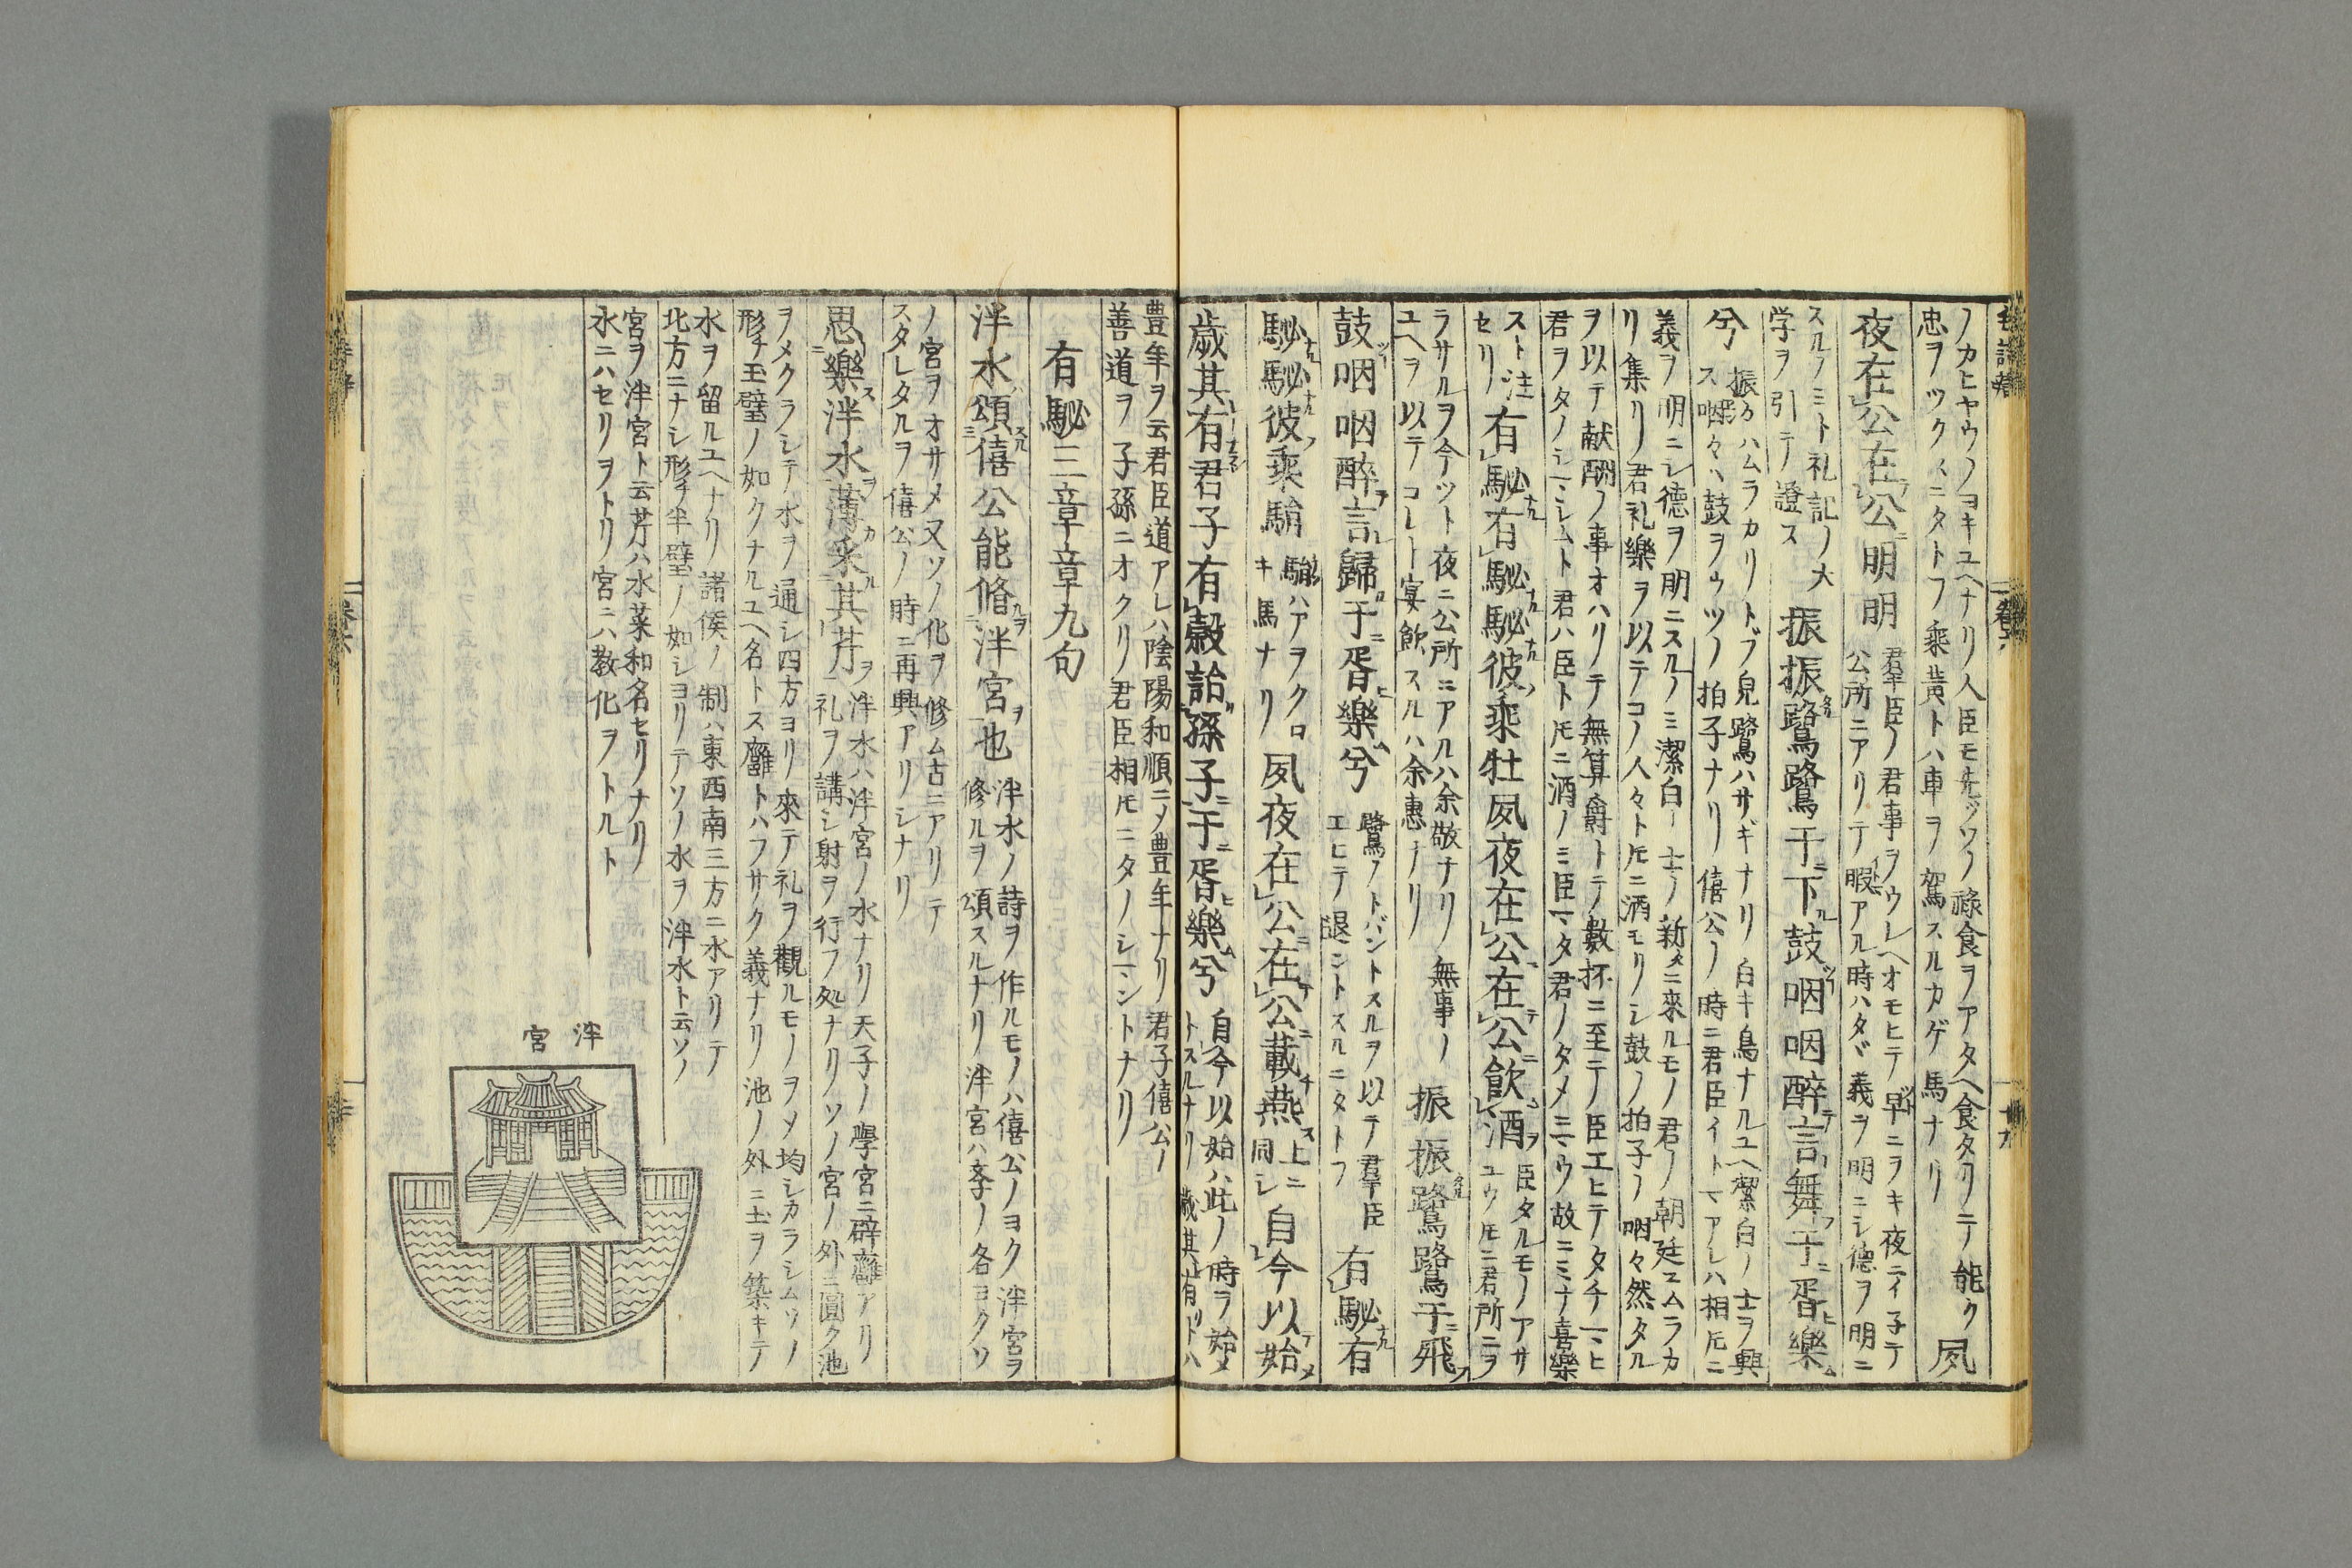 ノカヒヤウノヨキユヘナリ人臣モ先ツソノ祿食ヲアタヘ食タリテ能ク
忠ヲツクスニタトフ乘黄トハ車ヲ駕スルカゲ馬ナリ
夙
夜在公在公明明
羣臣ノ君事ヲウレヘオモヒテ早ニヲキ夜ニイ子テ
公所ニアリテ暇アル時ハタヾ義ヲ明ニシ德ヲ明ニ
スルノミト礼記ノ大
学ヲ引テ證ス
振振鷺鷺于下鼓咽咽醉言舞于胥樂
兮
振々ハムラカリトブ皃鷺ハサギナリ白キ鳥ナルユヘ潔白ノ士ヲ興
ス咽々ハ鼓ヲウツノ拍子ナリ僖公ノ時ニ君臣イトマアレハ相𪜈ニ
義ヲ明ニシ德ヲ明ニスルノミ潔白ノ士ノ新タニ來ルモノ君ノ朝廷エムラカ
リ集リ君礼樂ヲ以テコノ人々ト𪜈ニ酒モリシ鼓ノ拍子ノ咽々然タル
ヲ以テ献酬ノ事オハリテ無算爵トテ數抔ニ至テノ臣エヒテタチマヒ
君ヲタノシマシムト君ハ臣ト𪜈ニ酒ノミ臣マタ君ノタメニマウ故ニミナ喜樂
スト注
セリ
有駜有駜駜彼乘牡夙夜在公在公飮酒
臣タルモノアサ
ユウ𪜈ニ君所ニヲ
ラサルヲ今ツト夜ニ公所ニアルハ余敬ナリ無事ノ
ユヘヲ以テコレト宴飮スルハ余惠ナリ
振振鷺鷺于飛
鼓咽咽醉言歸于胥樂兮
鷺ノトバントスルヲ以テ羣臣
エヒテ退ントスルニタトフ
有駜有
駜駜彼乘駽
駽ハアヲクロ
キ馬ナリ
夙夜在公在公載燕
上ニ
同シ
自今以始
歲其有君子有穀詒孫子于胥樂兮
自今以始ハ此ノ時ヲ始メ
トスルナリ歲其有リトハ
豊年ヲ云君臣道アレハ陰陽和順ニメ豊年ナリ君子僖公ノ
善道ヲ子孫ニオクリ君臣相𪜈ニタノシマントナリ
有駜三章章九句
泮水頌僖公能脩泮宮也
泮水ノ詩ヲ作ルモノハ僖公ノヨク泮宮ヲ
修ルヲ頌スルナリ泮宮ハ孝ノ名ヨクソ
ノ宮ヲオサメ又ソノ化ヲ修ム古ニアリテ
スタレタルヲ僖公ノ時ニ再興アリシナリ
思樂泮水薄采其芹
泮水ハ泮宮ノ水ナリ天子ノ學宮ニ辟廱アリ
礼ヲ講シ射ヲ行フ処ナリソノ宮ノ外ニ圓ク池
ヲメクラシテ水ヲ通シ四方ヨリ來テ礼ヲ觀ルモノヲメ均シカラシムソノ
形チ玉璧ノ如クナルユヘ名トス廱トハフサク義ナリ池ノ外ニ土ヲ築キテ
水ヲ留ルユヘナリ諸侯ノ制ハ東西南三方ニ水アリテ
北方ニナシ形チ半璧ノ如シヨリテソノ水ヲ泮水ト云ソノ
宮ヲ泮宮ト云芹ハ水菜和名セリナリ
水ニハセリヲトリ宮ニハ教化ヲトルト
泮宮